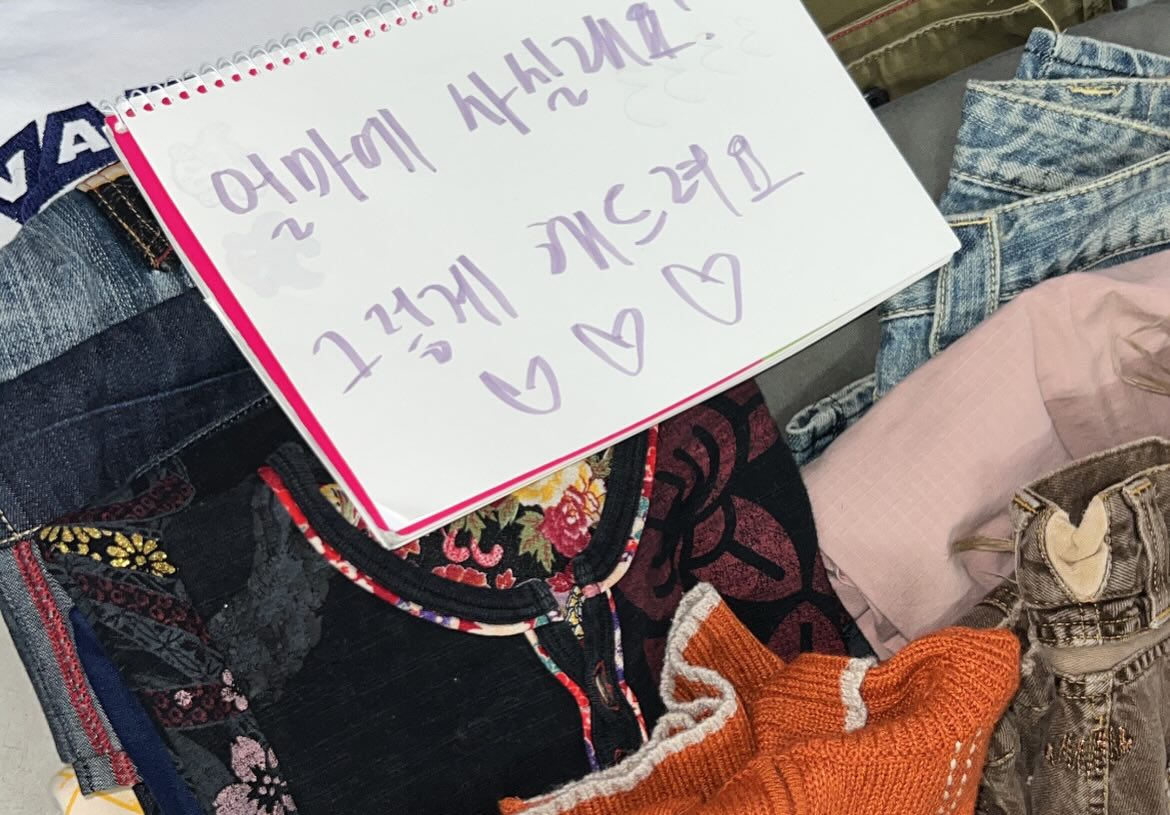 얼마에 사실래요?
그렇게 해드려요
VA